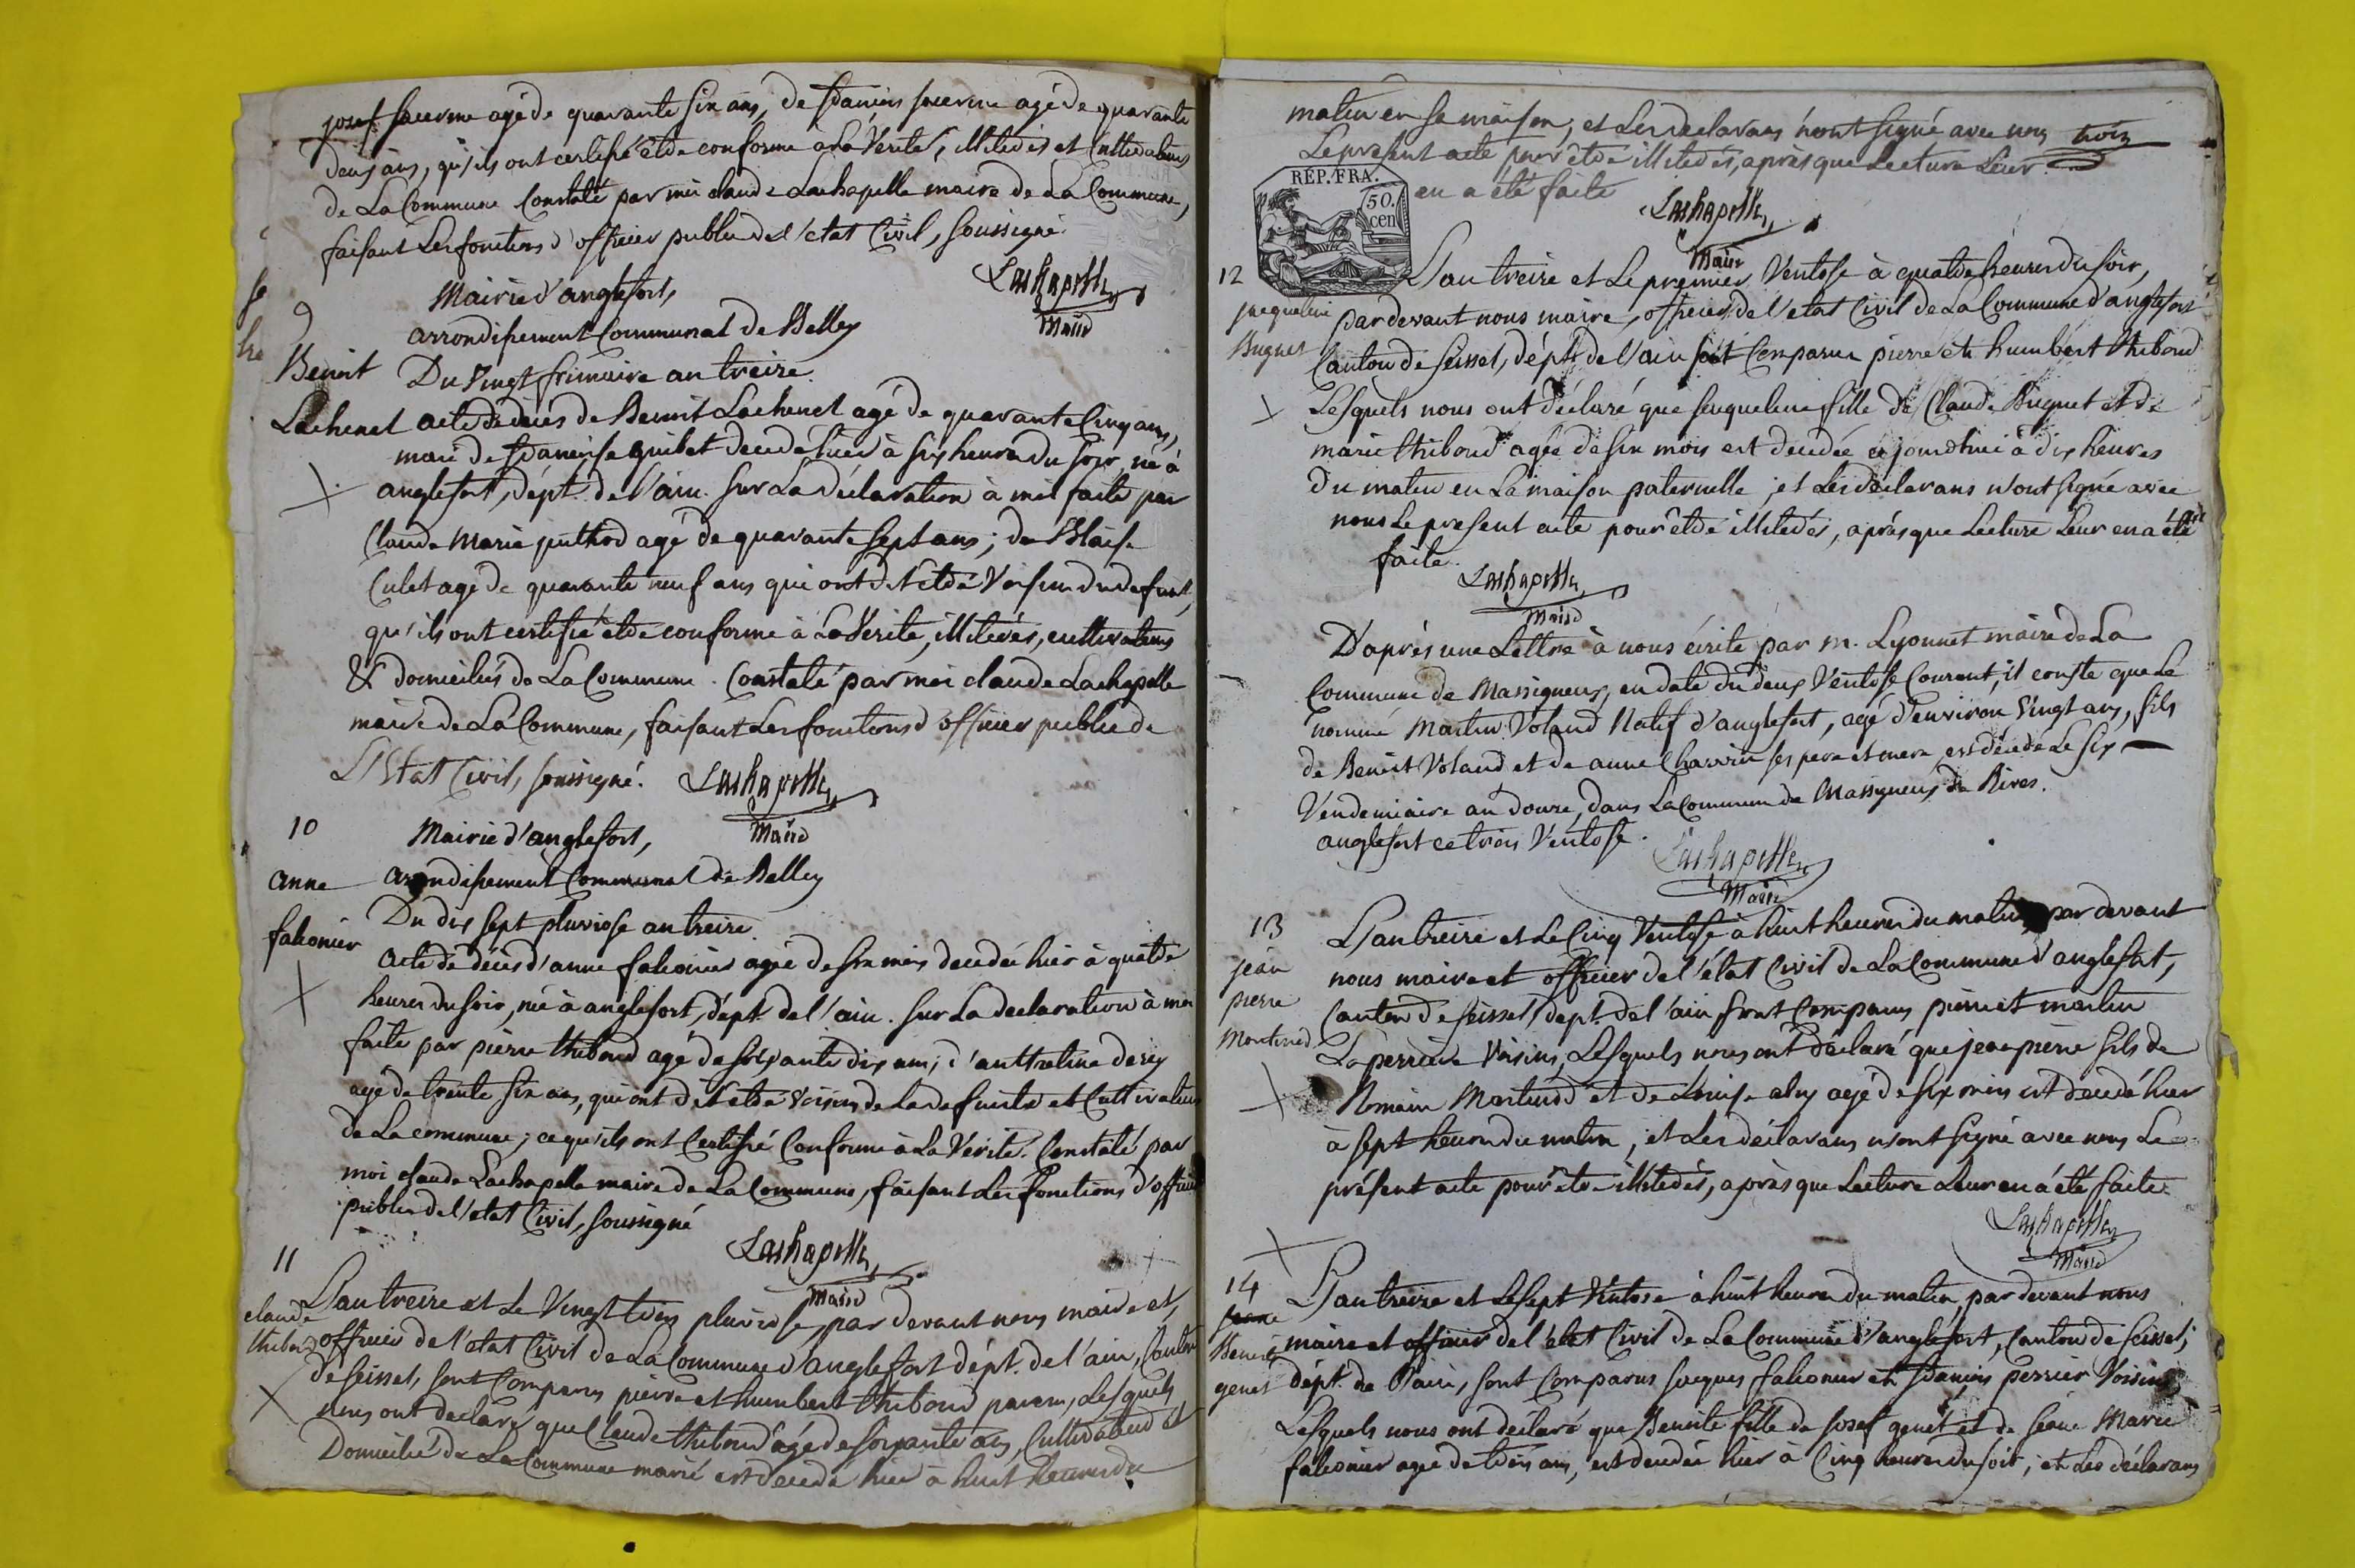 josef sacerme agé de quarante six ans, de françois sacerme agé de quarante
deux ans, qu'ils ont certifié être conforme à la Vérité, illiterés et Cultivateurs
de La Commune Constaté par moi claude Lachapelle maire de La Commune,
faisant Les fonctions d'officier public de l'etat Civil, soussigné.
Lachapelle
Maire
9
Mairie d'anglefort,
arrondissement Communal de Belley
Benoit
Du Vingt frimaire an treize.
Lachenal
acte de décès de Benoit Lachenal agé de quarante Cinq ans,
mari de françoise quibet decedé hier à six heures du soir, né à
anglefort, dépt. de l'ain. sur La déclaration à moi faite par
Claude Marie juthod agé de quarante sept ans; de Blaise
Culet agé de quarante neuf ans qui ont dit être Voisins du defunt,
qu'ils ont certifié être conforme à La Verité, illiterés, cultivateurs
& domiciliés de La Commune. Constaté par moi claude Lachapelle
maire de La Commune, faisant Les fonctions d'officier public de
L'Etat Civil, soussigné.
Lachapelle
Maire
10
Mairie d'anglefort,
anne
arrondissement Communal de Belley
falconier
Du dix sept pluviose an treize.
acte de décès d'anne falconier agée de six mois decedée hier à quatre
heures du soir, née à anglefort, dépt. de l'ain. sur La declaration à moi
faite par pierre thiboud agé de soixante dix ans; d'anthelme derey
agé de trente six ans, qui ont dit être Voisins de La defunte et Cultivateurs
de La commune; ce qu'ils ont Certifié Conforme à La Verité. Constaté par
moi claude Lachapelle maire de La Commune, faisant Les fonctions d'officier
public de l'etat Civil, soussigné
Lachapelle
Maire
11
claude
thiboud
L'an treize et Le Vingt trois pluviose, par devant nous maire et
officier de l'etat Civil de La Commune d'anglefort dépt. de l'ain, Canton
de seissel, sont Comparus pierre et humbert thiboud parens, Lesquels
nous ont declaré que Claude thiboud agé de soixante ans, Cultivateur et
Domicilié de La Commune marié est decedé hier à huit heures du
matin en sa maison, et Les declarans n'ont signé avec nous
Le present acte pour être illiterés, après que Lecture Leur
en a été faite
REP. FRA.
50.
cen
Lachapelle
Maire
12
jacqueline
Buguet
L'an treize et Le premier Ventose à quatre heures du soir,
par devant nous maire, officier de l'etat Civil de La Commune d'anglefort
Canton de seissel, dépt. de l'ain sont Comparus pierre et humbert thiboud
Lesquels nous ont déclaré que jacqueline fille de Claude Buguet et de
marie thiboud agée de six mois est decedée ajourd'hui à dix heures
du matin en La maison paternelle, et Les déclarans n'ont signé avec
nous Le present acte pour être illiterés, après que Lecture Leur en a été
faite.
Lachapelle
Maire
D'après une Lettre à nous écrite par m. Lyonnet maire de La
Commune de Massigneux, en date du deux Ventose Courant, il conste que Le
nommé Martin Voland Natif d'anglefort, agé d'environ Vingt ans, fils
de Benoit Voland et de anne Charvin ses pere et mere est décédé Le six
Vendemiaire an douze, dans La Commune de Massigneux de Rives.
anglefort ce trois Ventose.
Lachapelle
Maire
13
jean
pierre
Martinod
L'an treize et Le Cinq Ventose à huit heures du matin, par devant
nous maire et officier de l'état Civil de La Commune d'anglefort,
Canton de seissel, dept. de l'ain sont Comparus pierre et martin
Laperriere Voisins, Lesquels nous ont déclaré que jean pierre fils de
Romain Martinod et de Louise aly agé de six mois est decedé hier
à sept heures du matin, et Les déclarans n'ont signé avec nous Le
présent acte pour être illiterés, après que Lecture Leur en a été faite.
Lachapelle
Maire
14
Benoite
genet
L'an treize et Le sept Ventose à huit heures du matin, par devant nous
maire et officier de l'état Civil de La Commune d'anglefort, Canton de seissel,
dépt. de l'ain, sont Comparus jacques falconier et françois perrier Voisins
Lesquels nous ont déclaré que Benoite fille de josef genet et de jeane Marie
falconier agée de trois ans, est decedée hier à Cinq heures du soir, et Les déclarans